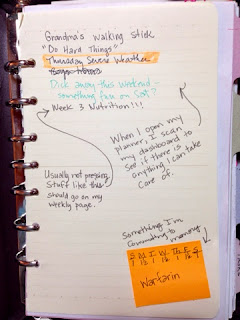 Grandma's walking stick
"Do Hard Things"
Thursday Severe Weather
Dick away this weekend -
something fun on Sat?
Week 3 Nutrition!!!
When I open my
planner, I scan
my dashboard to
see if there is
anything I can take
care of.
Usually not pressing.
Stuff like this
should go on my
weekly page.
Something I'm
committing to memory
S M T W Th F S
Warfarin